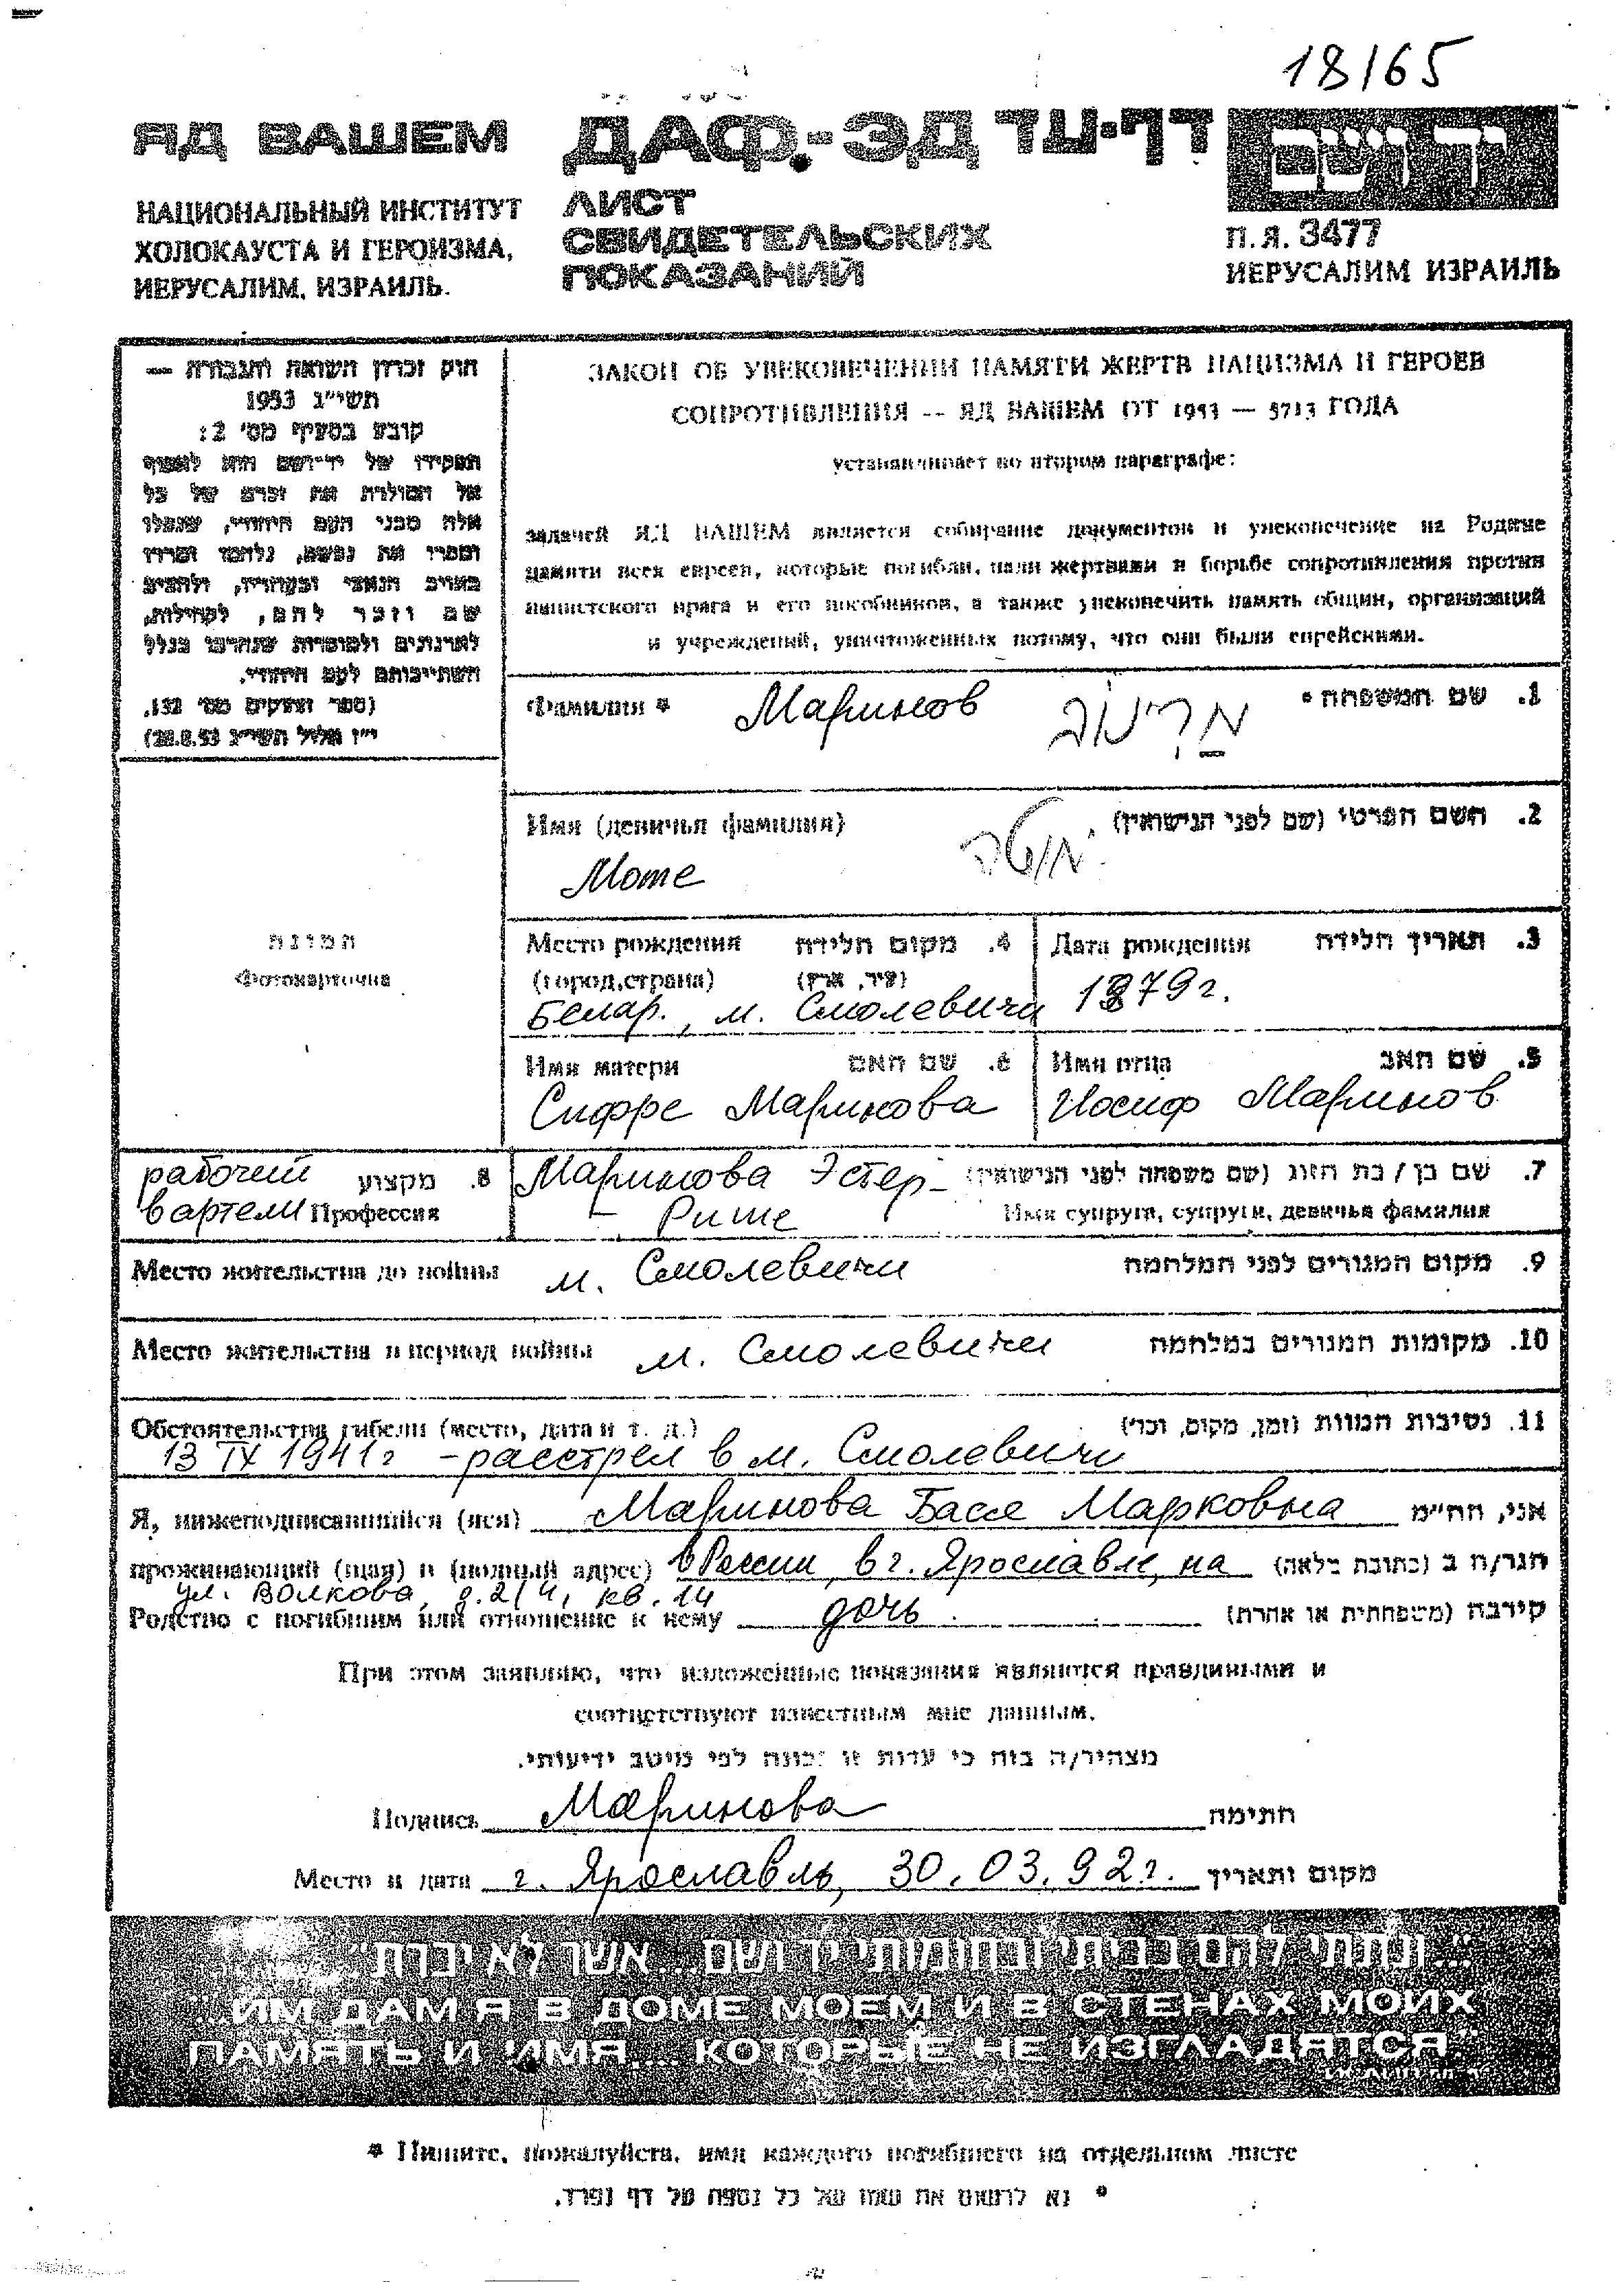 18/65
ЯД ВАШЕМ
ДАФ.-ЭД
דף-עד
יד ושם
НАЦИОНАЛЬНЫЙ ИНСТИТУТ
ХОЛОКАУСТА И ГЕРОИЗМА,
ИЕРУСАЛИМ, ИЗРАИЛЬ.
ЛИСТ
СВИДЕТЕЛЬСКИХ
ПОКАЗАНИЙ
П.Я. 3477
ИЕРУСАЛИМ ИЗРАИЛЬ
חוק זכרון השואה והגבורה —
תשי"ג 1953
קובע בסעיף מס' 2:
תפקידו של יד-ושם הוא לאסוף
אל המולדת את זכרם של כל
אלה מבני העם היהודי, שנפלו
ומסרו את נפשם, נלחמו ומרדו
באויב הנאצי ובעוזריו, ולהציב
שם וזכר להם, לקהילות,
לארגונים ולמוסדות שנחרבו בגלל
השתייכותם לעם היהודי.
(ספר החוקים מס' 132,
י"ז אלול תשי"ג 28.8.53)
ЗАКОН ОБ УВЕКОВЕЧЕНИИ ПАМЯТИ ЖЕРТВ НАЦИЗМА И ГЕРОЕВ
СОПРОТИВЛЕНИЯ -- ЯД ВАШЕМ ОТ 1953 — 5713 ГОДА
устанавливает во втором параграфе:
задачей ЯД ВАШЕМ является собирание документов и увековечение на Родине
памяти всех евреев, которые погибли, пали жертвами в борьбе сопротивления против
нацистского врага и его пособников, а также увековечить память общин, организаций
и учреждений, уничтоженных потому, что они были еврейскими.
Фамилия * Маринов מַרִינוֹב 1. שם המשפחה *
Имя (девичья фамилия) מוטה 2. השם הפרטי (שם לפני הנישואין)
Моте
תמונה
Фотокарточка
Место рождения 4. מקום הלידה
(город,страна) (עיר, ארץ)
Белар., м. Смолевичи
Дата рождения 3. תאריך הלידה
1879г.
Имя матери 6. שם האם
Сифре Маринова
Имя отца 5. שם האב
Иосиф Маринов
рабочий 8. מקצוע
в артели Профессия
Маринова Эстер- 7. שם בן / בת הזוג (שם משפחה לפני הנישואין)
- Рише Имя супруги, супруги, девичья фамилия
Место жительства до войны м. Смолевичи 9. מקום המגורים לפני המלחמה
Место жительства в период войны м. Смолевичи 10. מקומות המגורים במלחמה
Обстоятельства гибели (место, дата и т. д.) 11. נסיבות המוות (זמן, מקום, וכו')
13 IX 1941г - расстрел в м. Смолевичи
Я, нижеподписавшийся (аяся) Маринова Бася Марковна אני, הח"מ
проживающий (щая) в (полный адрес) в России, в г. Ярославле, на הגר/ה ב (כתובת מלאה)
ул. Волкова, д. 2/4, кв. 14
Родство с погибшим или отношение к нему дочь קירבה (משפחתית או אחרת)
При этом заявляю, что изложенные показания являются правдивыми и
соответствуют известным мне данным.
מצהיר/ה בזה כי עדות זו נכונה לפי מיטב ידיעותי.
Подпись Маринова חתימה
Место и дата г. Ярославль, 30.03.92г. מקום ותאריך
"...ונתתי להם בביתי ובחומותי יד ושם... אשר לא יכרת"
"...ИМ ДАМ Я В ДОМЕ МОЕМ И В СТЕНАХ МОИХ
ПАМЯТЬ И ИМЯ.... КОТОРЫЕ НЕ ИЗГЛАДЯТСЯ."
* Пишите, пожалуйста, имя каждого погибшего на отдельном листе
* נא לרשום את שמו של כל נספה על דף נפרד.